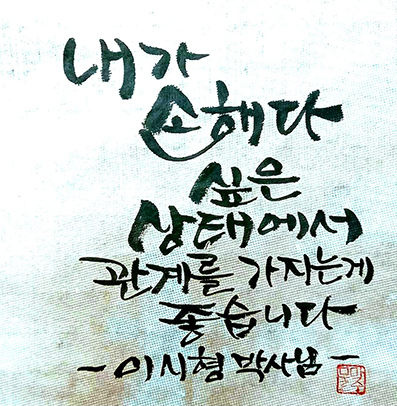 내가
손해다
싶은
상태에서
관계를 가지는게
좋습니다
- 이시형 박사님 -